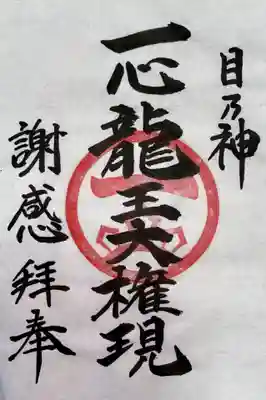 目乃神
一心龍王大権現
奉拝感謝